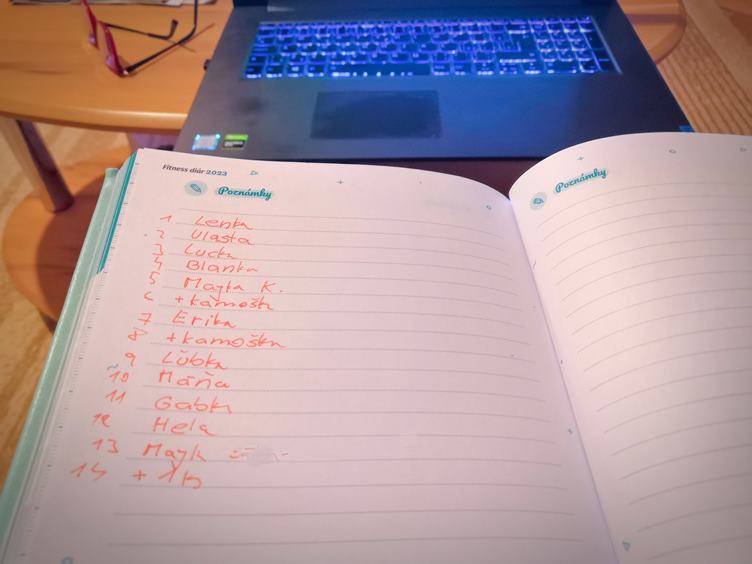 Fitness diár 2023
Poznámky
1 Lenka
2 Vlasta
3 Lucka
4 Blanka
5 Majka K.
6 +kamoška
7 Erika
8 +kamoška
9 Ľubka
10 Máňa
11 Gabka
12 Hela
13 Majk
14 + 1
Poznámky